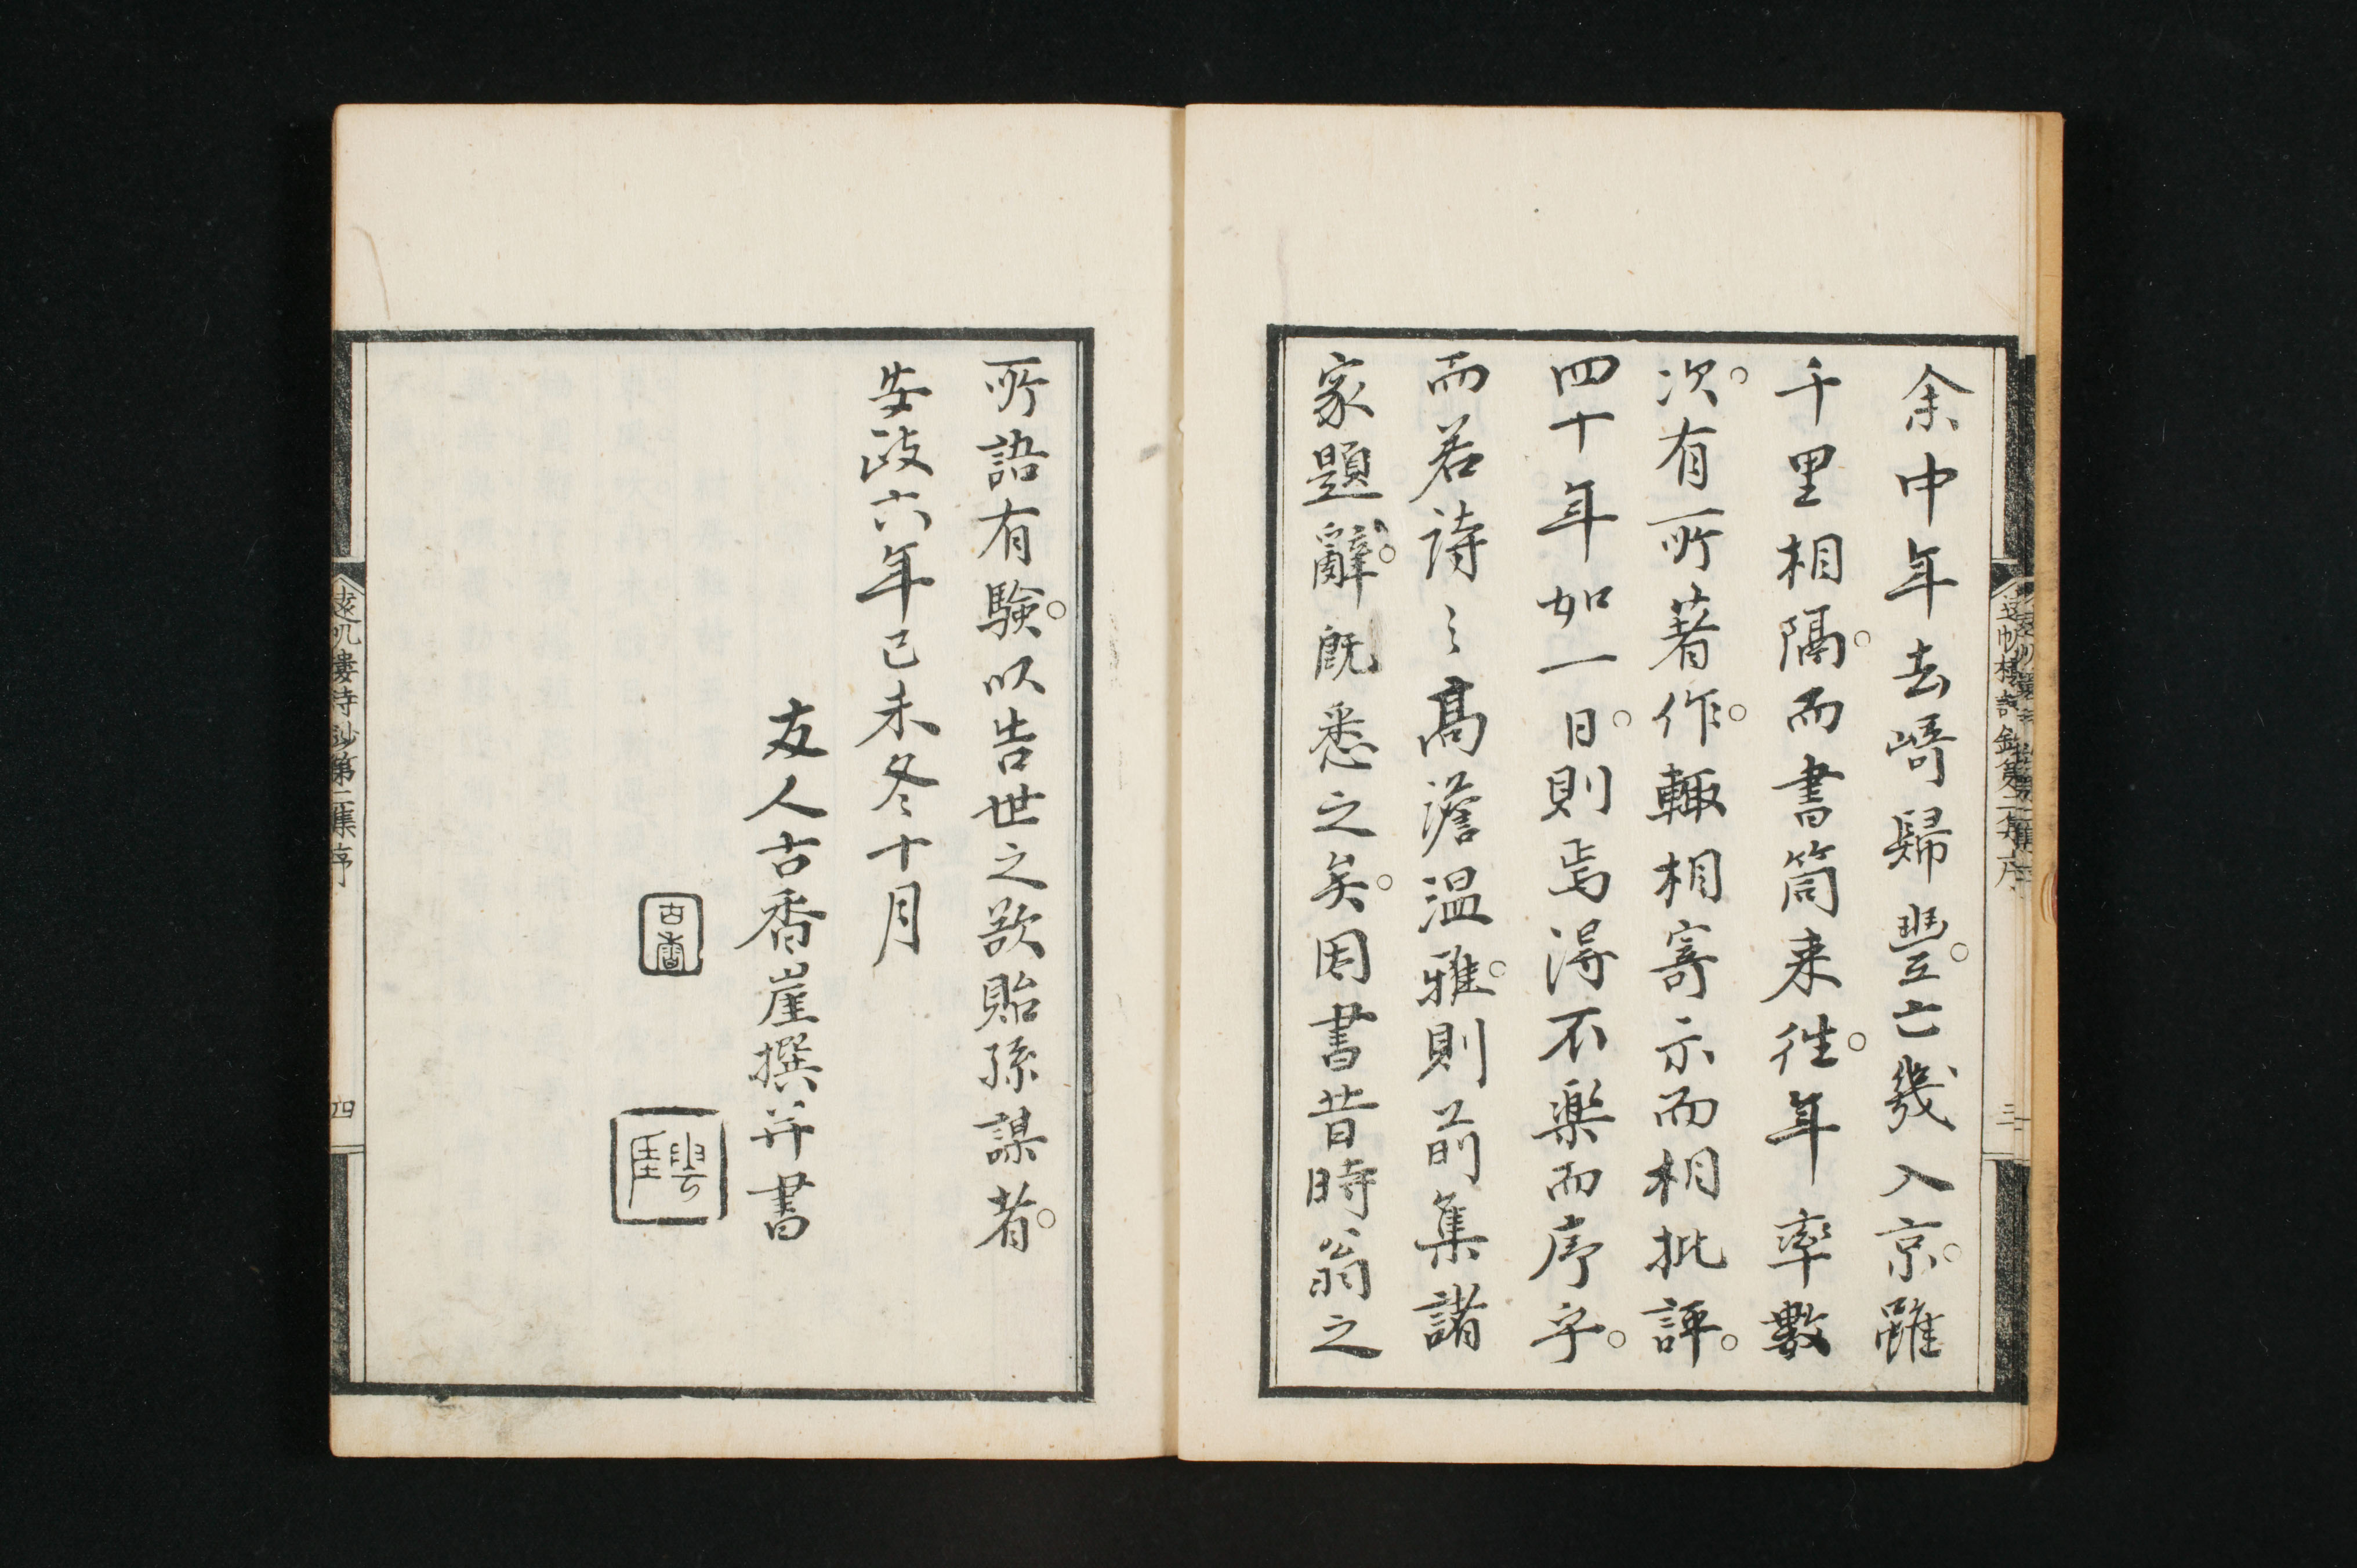 余中年去﨑歸豊。亡幾入京。雖
千里相隔。而書筒来徃。年率數
次。有所著作。輙相寄示而相批評。
四十年如一日。則焉得不楽而序乎。
而若詩之高澹温雅。則前集諸
家題辭。既悉之矣。因書昔時翁之
所語有験。以告世之欲貽孫謀者。
安政六年己未冬十月
友人古香崖撰并書
古香
遠帆樓詩鈔第二集序
三
遠帆樓詩鈔第二集序
四